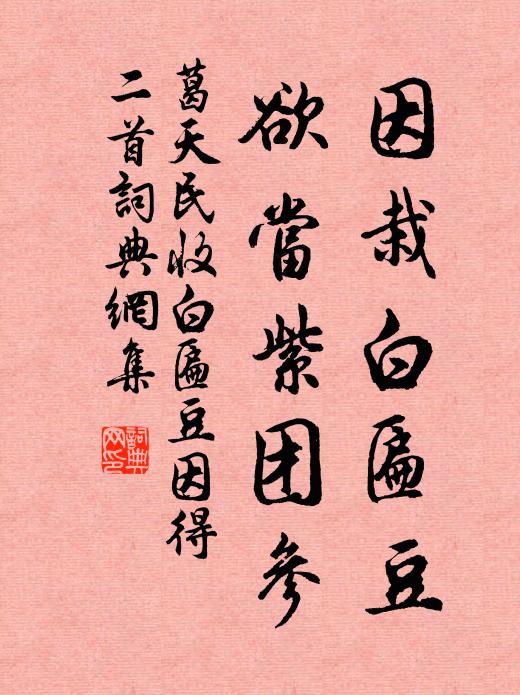 因栽白匾豆
欲當紫团參
葛天民收白匾豆因得
二首詞典網集
詞典
网印